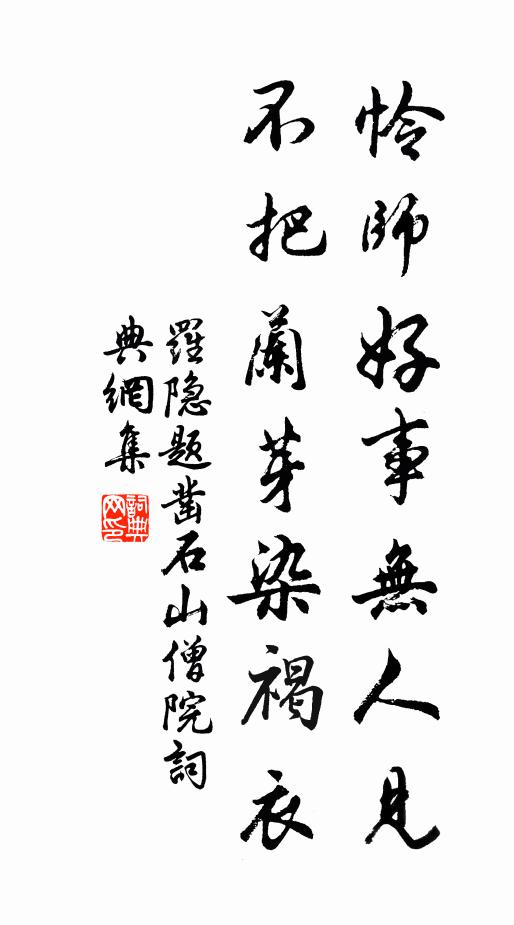 怜師好事無人見
不把蘭芽染褐衣
羅隐题凿石山僧院詞
典網集
詞典网印